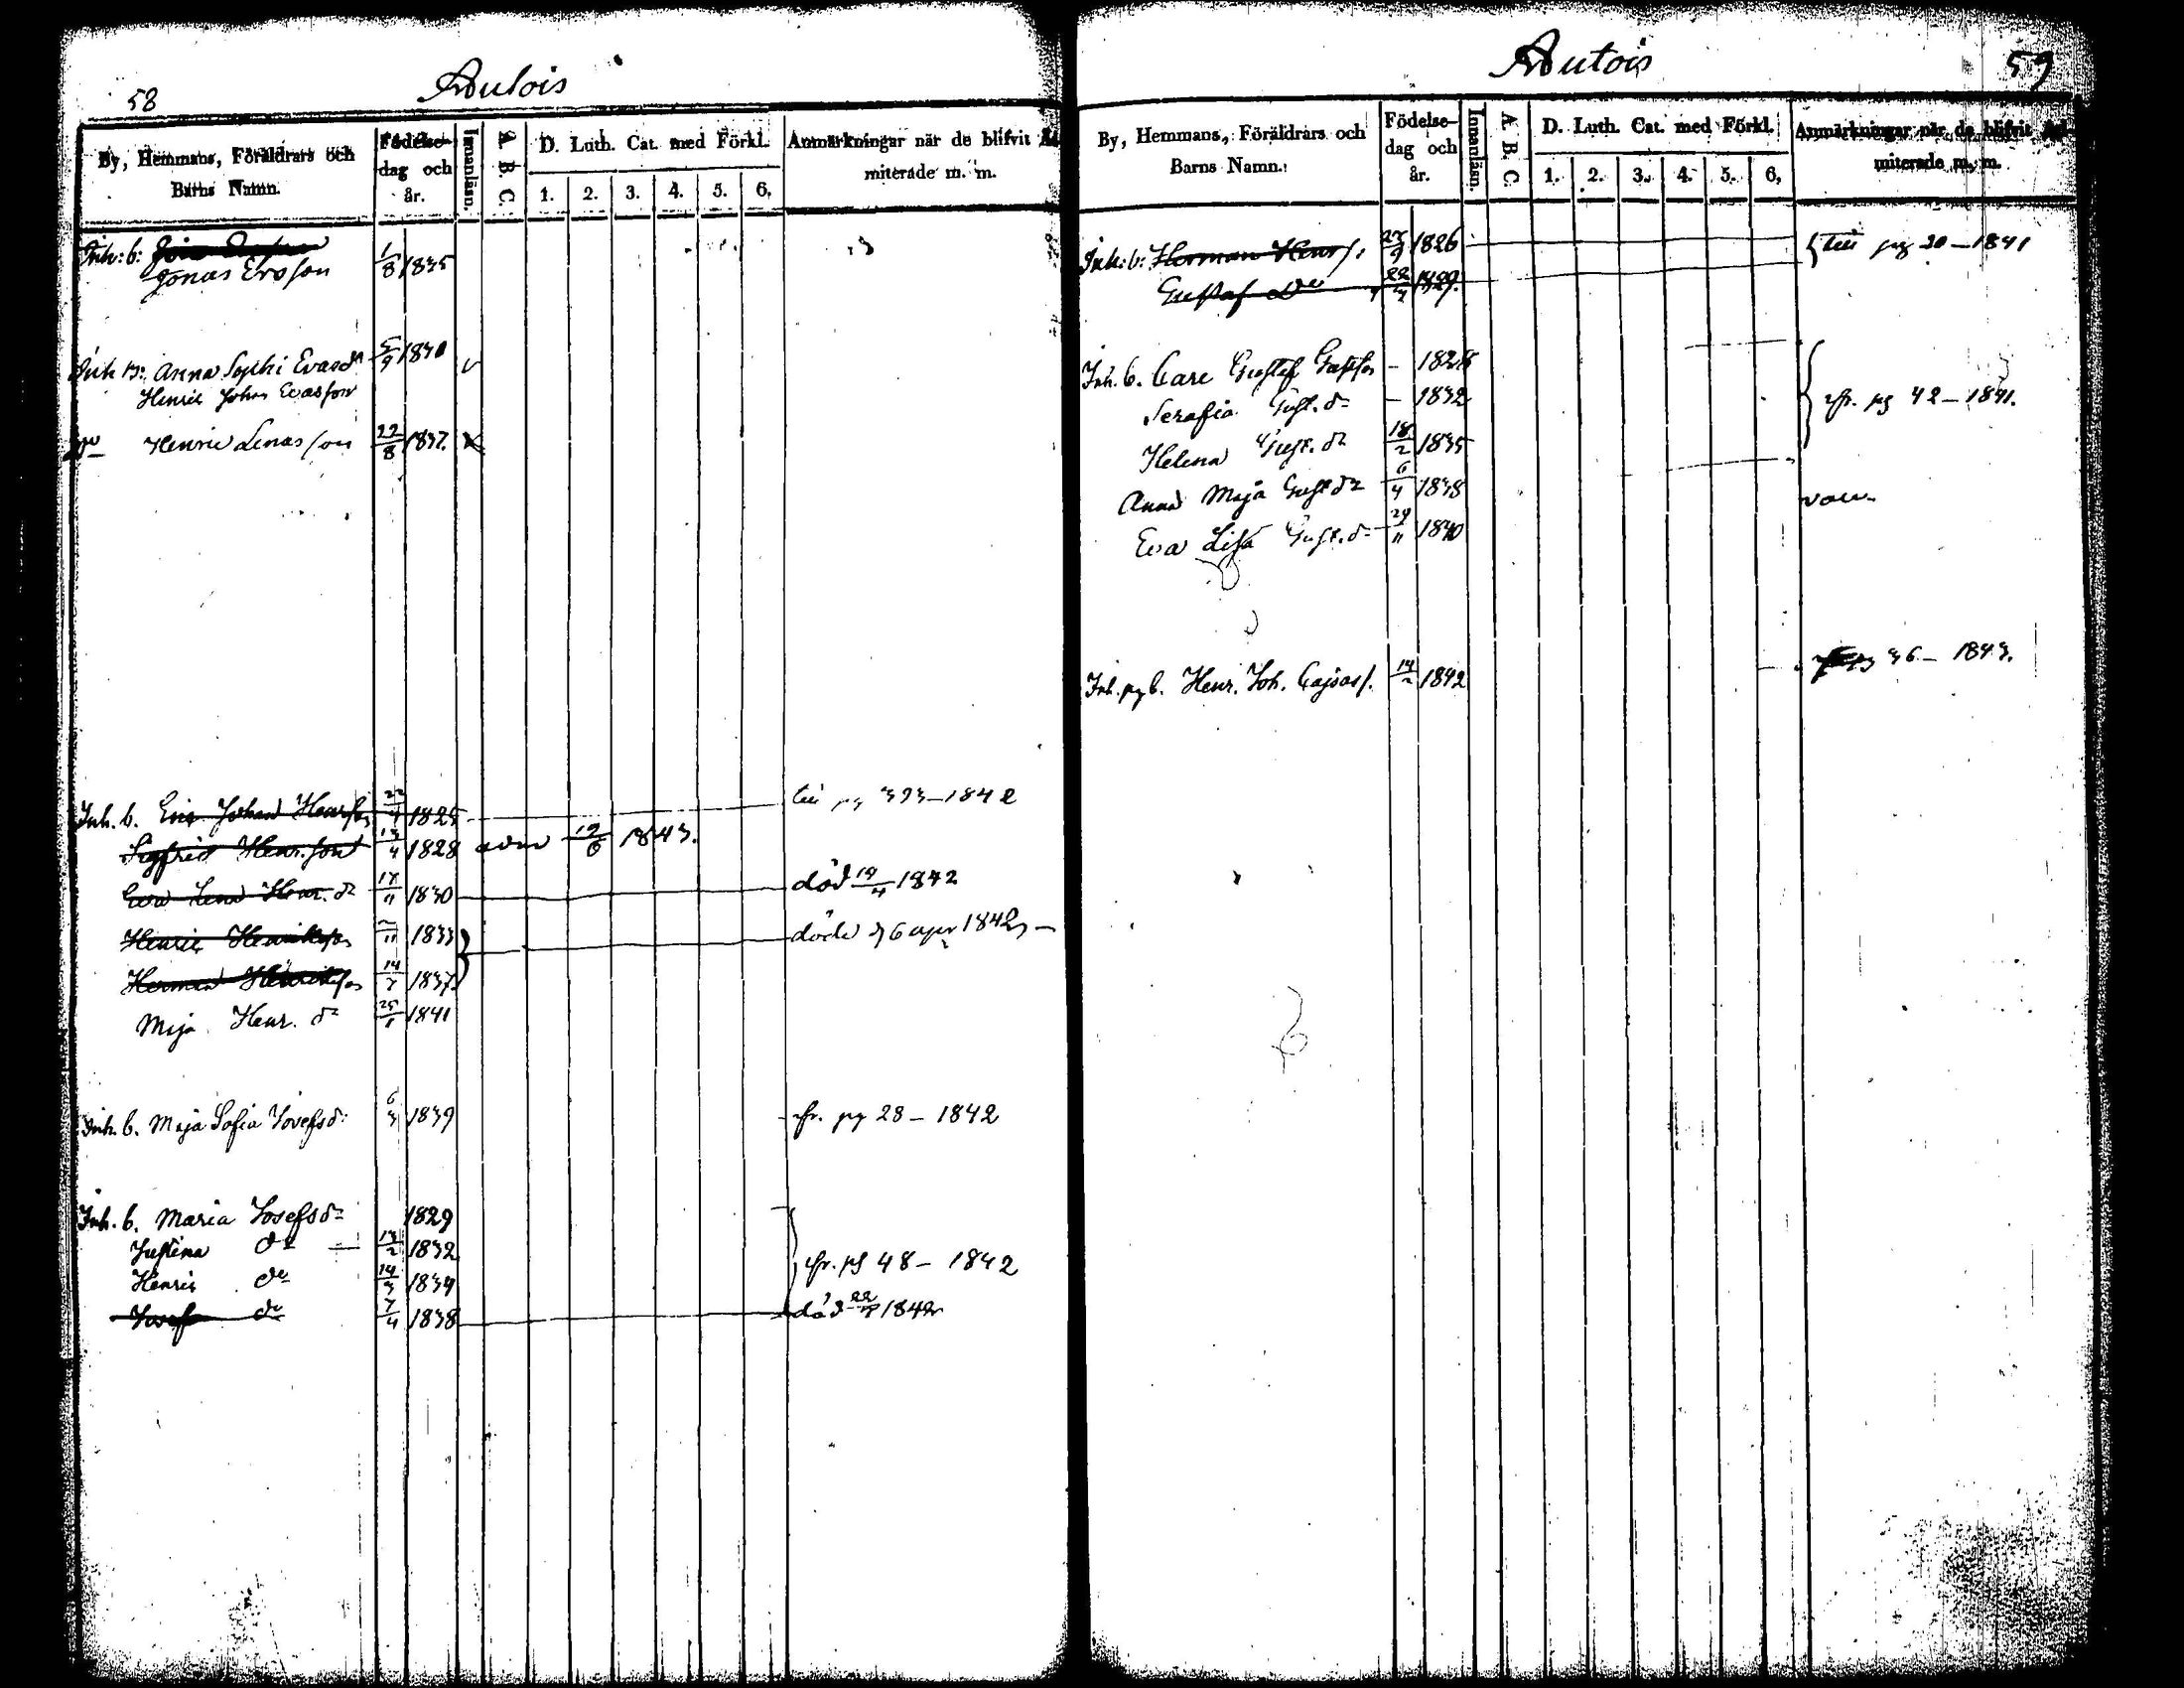 58
Autois
By, Hemmans, Föräldrars och Barns Namn.
Födelse-dag och år.
Innanläsn.
A B C
D. Luth. Cat. med Förkl.
1. 2. 3. 4. 5. 6.
Anmärkningar när de blifvit Ad-
miterade m. m.
Inh: b:
Jonas Ersson 1/8 1835
Inh b: Anna Sophi Evasdr 5/9 1830
Henric Johan Evasson
Do Henric Lenasson 22/8 1837.
Inh. b. Eric Johan Henrss 22/4 1825 till pg 393–1842
Sigfrid Henr.son 13/4 1828 adm 19/6 1843.
Eva Lena Henr. dr 17/11 1830 död 19/4 1842
Henric Henriksson 2/11 1833
döde d 6 apr 1842
Herman Henriksson 14/7 1837
Maja Henr. dr 25/1 1841
Inh. b. Maja Sofia Josefsd: 6/3 1839 fr. pg 28 – 1842
Inh. b. Maria Josefsdr 1829
Justina dr 13/2 1832
fr. pg 48 – 1842
Henric do 14/3 1834
Josef do 7/4 1838 död 22/4 1842
Autois
59
By, Hemmans, Föräldrars och
Barns Namn.
Födelse-dag och år.
Innanläsn.
A. B. C.
D. Luth. Cat. med Förkl.
1. 2. 3. 4. 5. 6.
Anmärkningar när de blifvit Ad-
miterade m. m.
Inh: b: Herman Henrs. 27/9 1826 till pg 20–1841
Gustaf do 22/4 1829.
Inh. b. Carl Gustaf Gustfss – 1828
Serafia Gust. dr – 1832 fr. pg 42 – 1841.
Helena Gust. dr 18/2 1835
Anna Maja Gust dr 6/4 1838
Eva Lisa Gust. dr 24/11 1840
Inh. pg b. Henr. Joh. Cajsas s. 14/2 1842 36 – 1843.